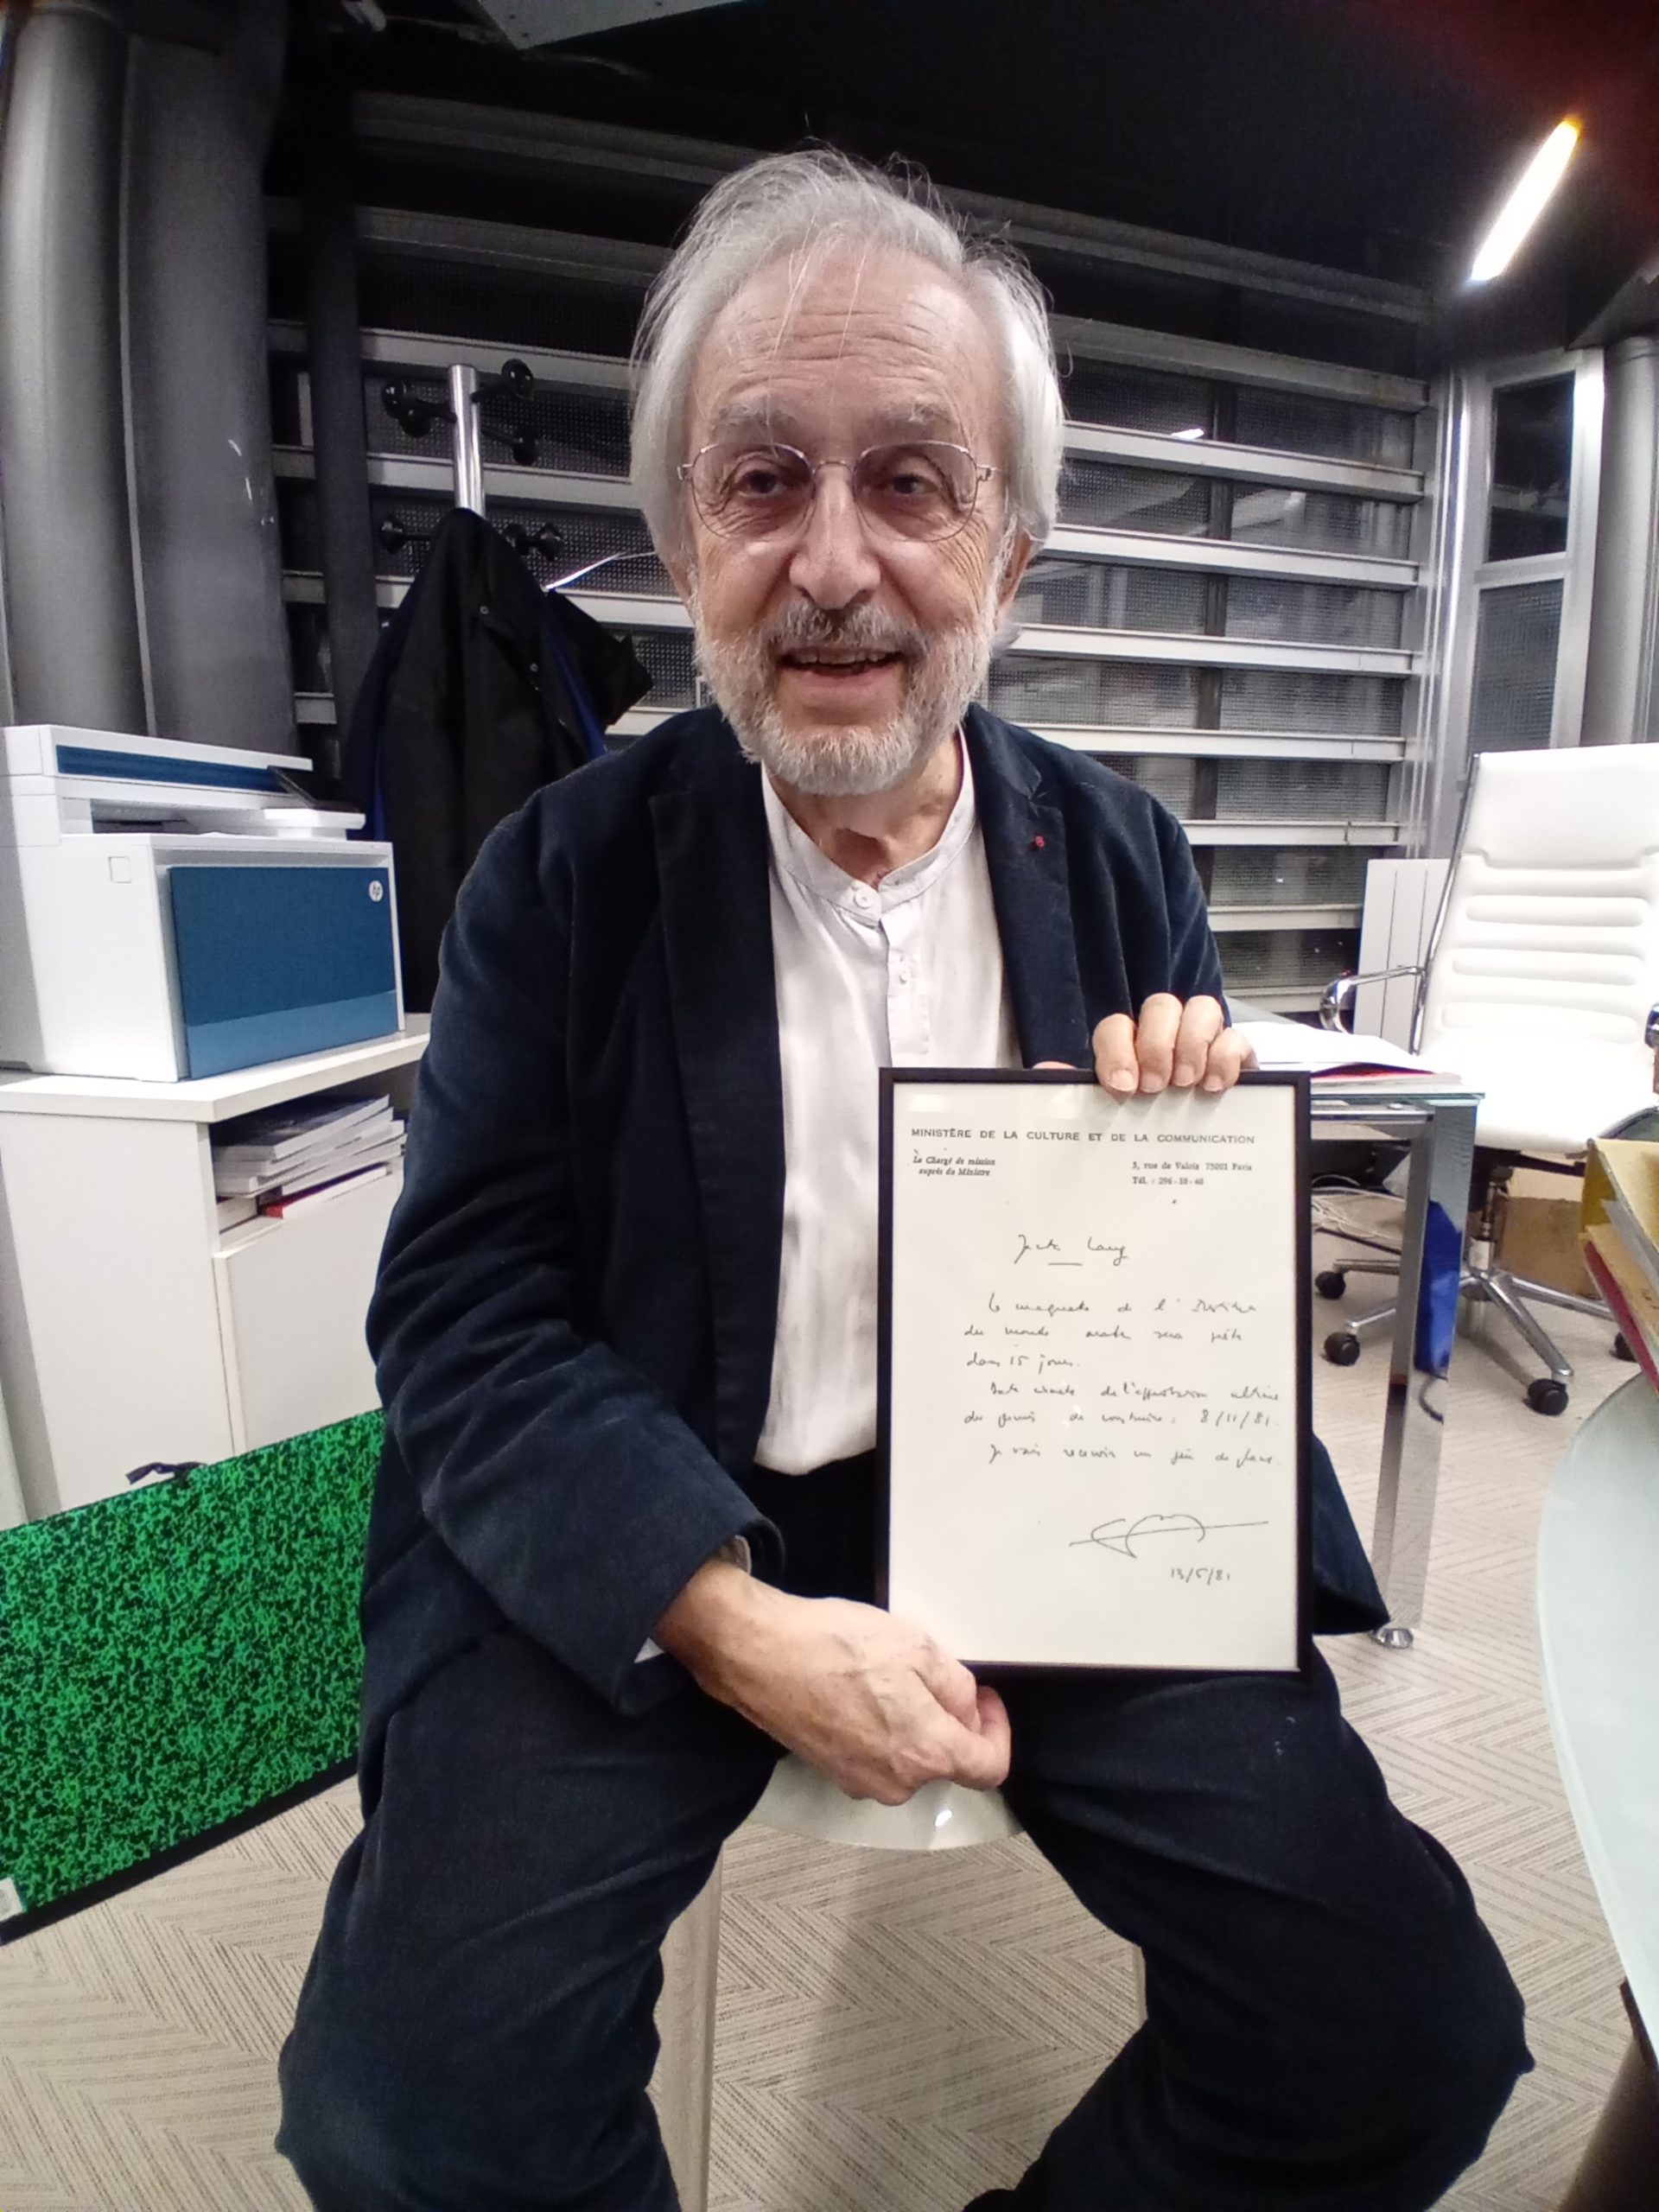 MINISTÈRE DE LA CULTURE ET DE LA COMMUNICATION
Le Chargé de mission
auprès du Ministre
3, rue de Valois 75001 Paris
Tél. : 296-10-40
Jack Lang
La maquette de l'Institut
du monde arabe sera prête
dans 15 jours.
Date exacte de l'approbation ultime
du permis de construire : 8/11/81.
Je vais recevoir un jeu de plans.
hp